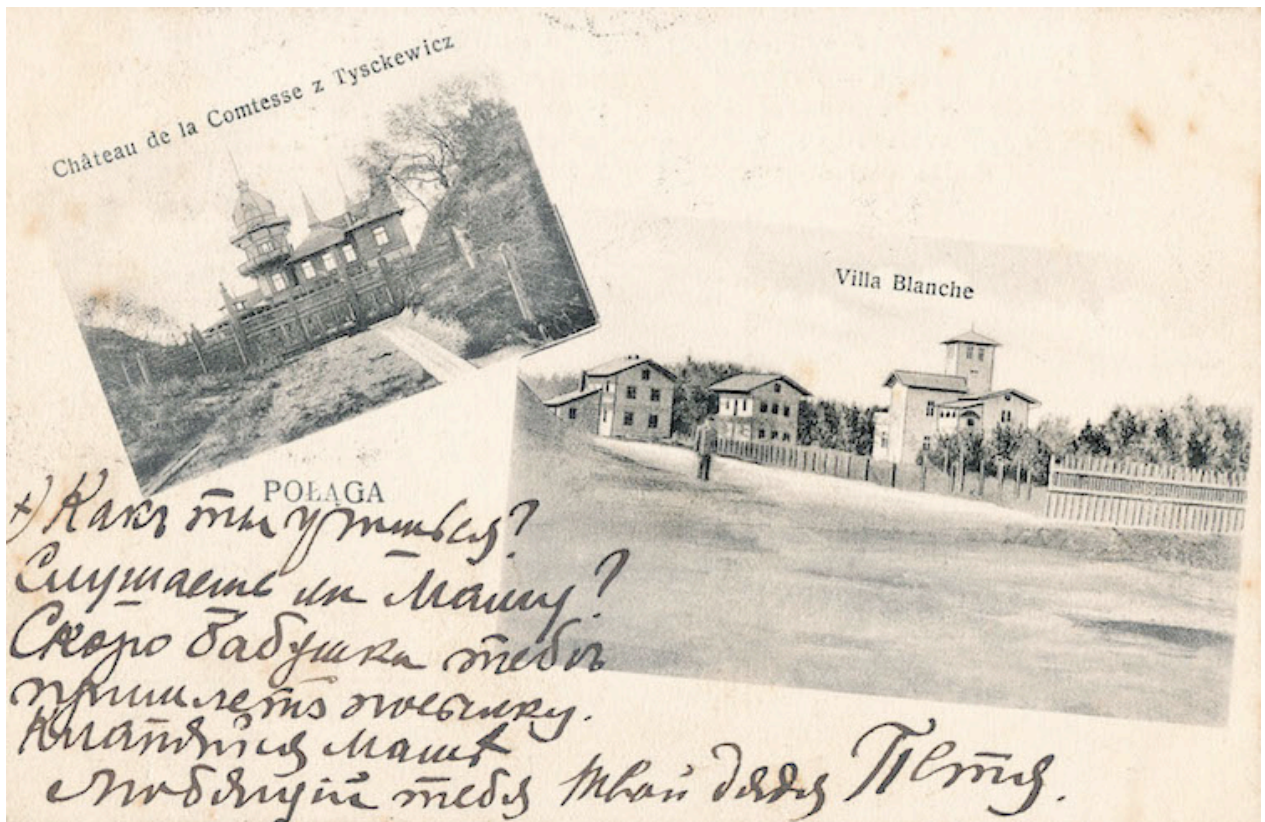 Château de la Comtesse z Tysckewicz
Villa Blanche
POŁAGA
+) Какъ ты учишься?
Слушаешь ли Машу?
Скоро бабушка тебѣ
пришлетъ посылку.
Кланяйся Машѣ
Любящій тебя твой дядя Петя.